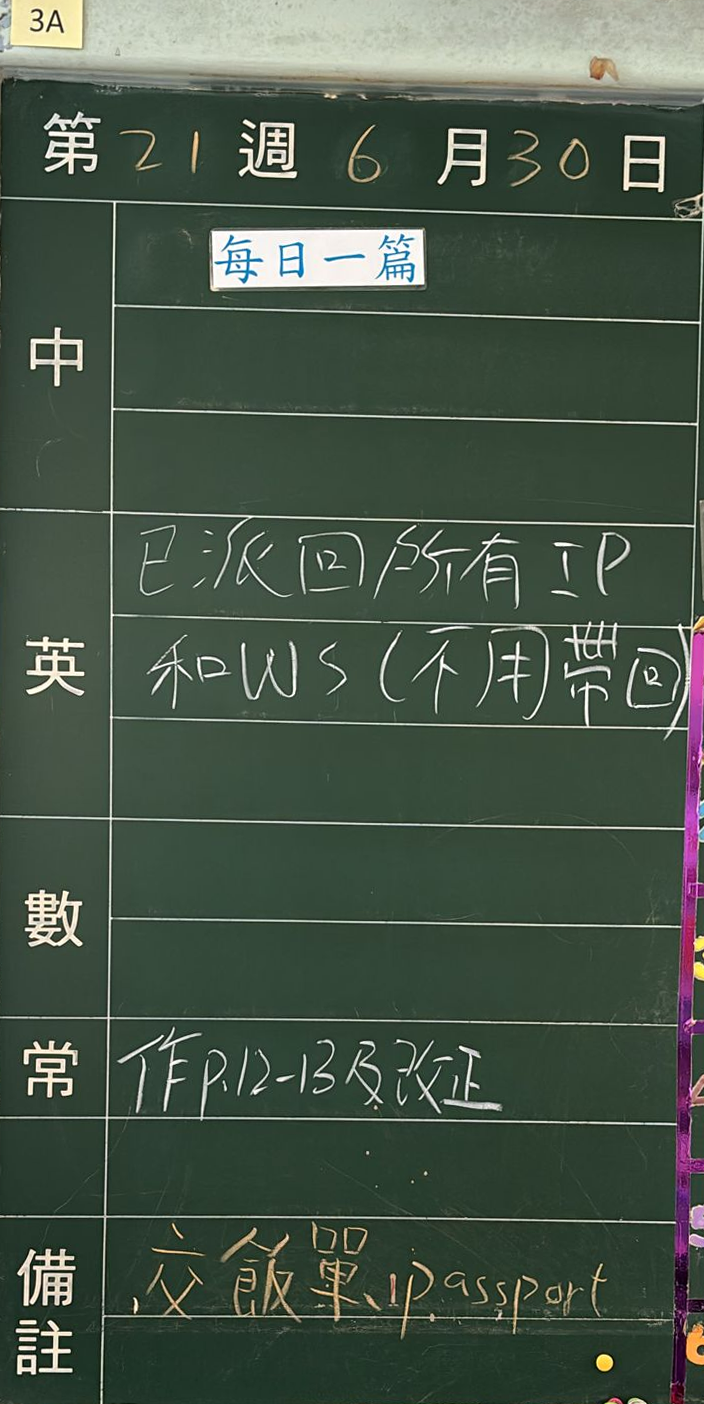 3A
第21週6月30日
中
每日一篇
英
已派回所有IP
和WS(不用帶回)
數
常
作p.12-13及改正
備註
交飯單、passport